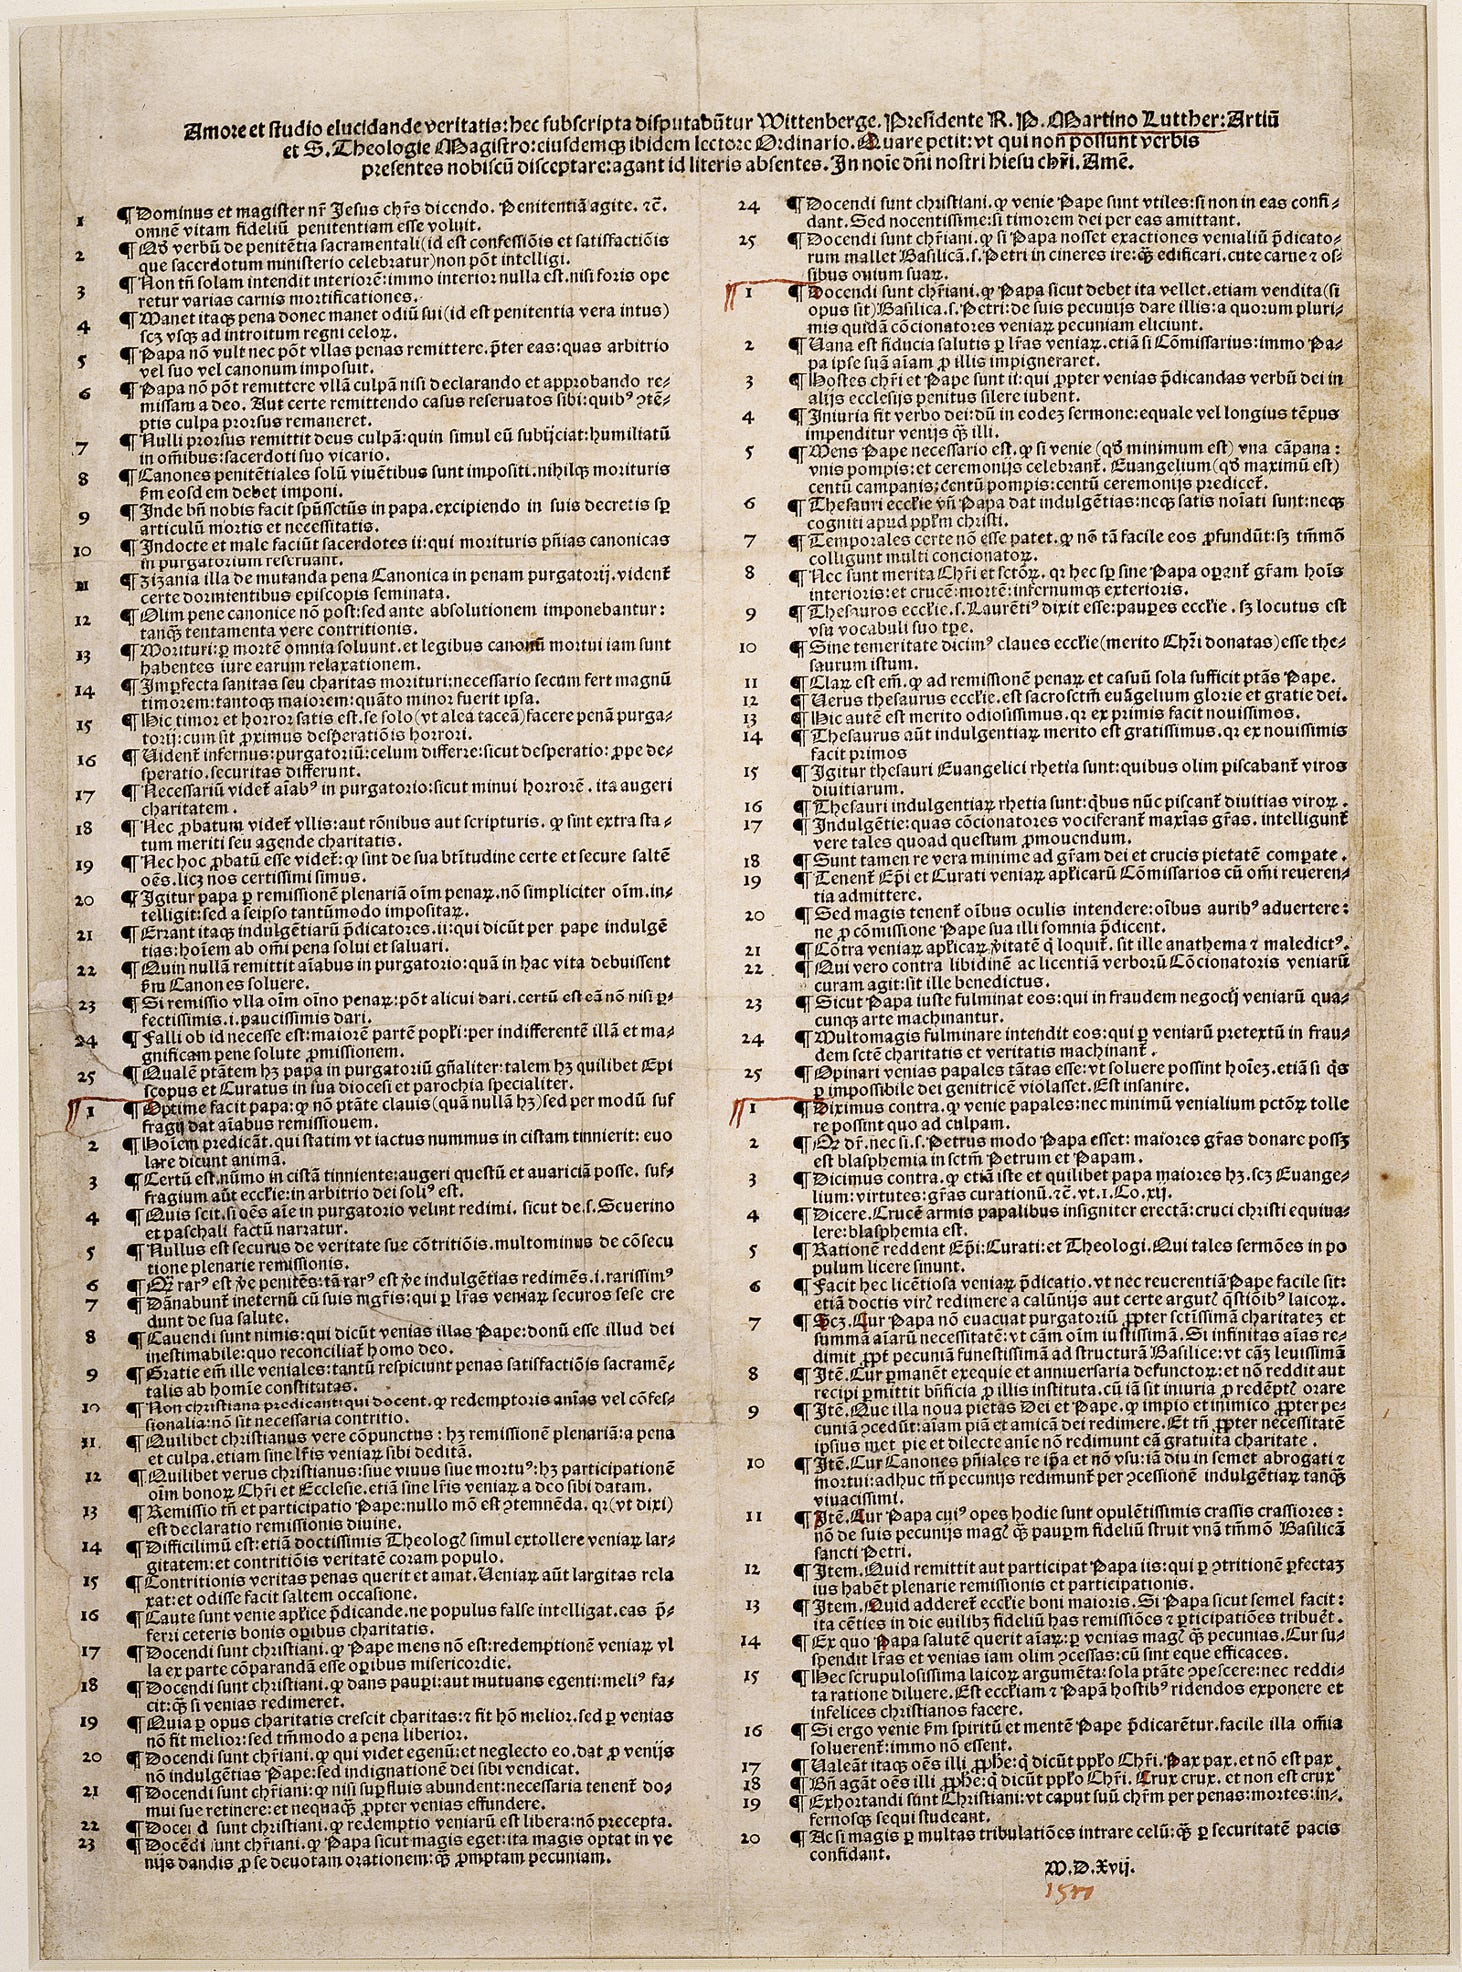 Amore et studio elucidande veritatis: hec subscripta disputabũtur Wittenberge. Presidente R. P. Martino Lutther: Artiũ
et S. Theologie Magistro: eiusdemqꝫ ibidem lectore Ordinario. Quare petit: vt qui non possunt verbis
presentes nobiscũ disceptare: agant id literis absentes. In noĩe dñi nostri hiesu chr̃i. Amẽ.
1 ¶ Dominus et magister nr̃ Jesus chr̃s dicendo. Penitentiã agite. ⁊c̃.
omnẽ vitam fideliũ penitentiam esse voluit.
2 ¶ Qḋ verbũ de penitẽtia sacramentali (id est confessiõis et satisfactiõis
que sacerdotum ministerio celebratur) non põt intelligi.
3 ¶ Non tñ solam intendit interiorẽ: immo interior nulla est. nisi foris ope
retur varias carnis mortificationes.
4 ¶ Manet itaqꝫ pena donec manet odiũ sui (id est penitentia vera intus)
scꝫ vsqꝫ ad introitum regni celoꝝ.
5 ¶ Papa nõ vult nec põt vllas penas remittere. p̃ter eas: quas arbitrio
vel suo vel canonum imposuit.
6 ¶ Papa nõ põt remittere vllã culpã nisi declarando et approbando re-
missam a deo. Aut certe remittendo casus reseruatos sibi: quibꝰ ꝯtẽ-
ptis culpa prorsus remaneret.
7 ¶ Nulli prorsus remittit deus culpã: quin simul eũ subijciat: humiliatũ
in om̃ibus: sacerdoti suo vicario.
8 ¶ Canones penitẽtiales solũ viuẽtibus sunt impositi. nihilqꝫ morituris
ẜm eosdem debet imponi.
9 ¶ Inde bñ nobis facit sp̃ũssctũs in papa. excipiendo in suis decretis sꝑ
articulũ mortis et necessitatis.
10 ¶ Indocte et male faciũt sacerdotes ii: qui morituris pñias canonicas
in purgatorium reseruant.
11 ¶ Zizania illa de mutanda pena Canonica in penam purgatorij. vident̃
certe dormientibus episcopis seminata.
12 ¶ Olim pene canonice nõ post: sed ante absolutionem imponebantur:
tanqꝫ̃ tentamenta vere contritionis.
13 ¶ Morituri: ꝑ mortẽ omnia soluunt. et legibus canonũ mortui iam sunt
habentes iure earum relaxationem.
14 ¶ Imꝑfecta sanitas seu charitas morituri: necessario secum fert magnũ
timorem: tantoqꝫ maiorem: quãto minor fuerit ipsa.
15 ¶ Hic timor et horror satis est. se solo (vt alea taceã) facere penã purga-
torij: cum sit ꝓximus desꝑatiõis horrori.
16 ¶ Vident̃ infernus: purgatoriũ: celum differre: sicut desperatio: ꝓpe de-
speratio. securitas differunt.
17 ¶ Necessariũ videt̃ aĩabꝰ in purgatorio: sicut minui horrorẽ. ita augeri
charitatem.
18 ¶ Nec ꝓbatum videt̃ vllis: aut rõnibus aut scripturis. ꝙ sint extra sta-
tum meriti seu agende charitatis.
19 ¶ Nec hoc ꝓbatũ esse videt̃: ꝙ sint de sua btĩtudine certe et secure saltẽ
oẽs. licꝫ nos certissimi simus.
20 ¶ Igitur papa ꝑ remissionẽ plenariã oĩm penaꝝ. nõ simpliciter oĩm. in-
telligit: sed a seipso tantũmodo impositaꝝ.
21 ¶ Errant itaqꝫ indulgẽtiarũ p̃dicatores. ii: qui dicũt per pape indulgẽ
tias: hoĩem ab om̃i pena solui et saluari.
22 ¶ Quin nullã remittit aĩabus in purgatorio: quã in hac vita debuissent
ẜm Canones soluere.
23 ¶ Si remissio vlla oĩm oĩno penaꝝ: põt alicui dari. certũ est eã nõ nisi ꝑ-
fectissimis. i. paucissimis dari.
24 ¶ Falli ob id necesse est: maiorẽ partẽ popl̃i: per indifferentẽ illã et ma-
gnificam pene solute ꝓmissionem.
25 ¶ Qualẽ ptãtem hꝫ papa in purgatoriũ gñaliter: talem hꝫ quilibet Epi
scopus et Curatus in sua diocesi et parochia specialiter.
1 ¶ Optime facit papa: ꝙ nõ ptãte clauis (quã nullã hꝫ) sed per modũ suf
fragij dat aĩabus remissionem.
2 ¶ Hoĩem predicãt. qui statim vt iactus nummus in cistam tinnierit: euo
lare dicunt animã.
3 ¶ Certũ est. nũmo in cistã tinniente: augeri questũ et auariciã posse. suf-
fragium aũt eccl̃ie: in arbitrio dei soliꝰ est.
4 ¶ Quis scit. si oẽs aĩe in purgatorio velint redimi. sicut de. s. Seuerino
et paschali factũ narratur.
5 ¶ Nullus est securus de veritate sue cõtritiõis. multominus de cõsecu
tione plenarie remissionis.
6 ¶ Qꝫ rarꝰ est ṽe penitẽs: tã rarꝰ est ṽe indulgẽtias redimẽs. i. rarissimꝰ
7 ¶ Dãnabunt̃ ineternũ cũ suis mgr̃is: qui ꝑ lr̃as veniaꝝ securos sese cre
dunt de sua salute.
8 ¶ Cauendi sunt nimis: qui dicũt venias illas Pape: donũ esse illud dei
inestimabile: quo reconciliat̃ homo deo.
9 ¶ Gratie em̃ ille veniales: tantũ respiciunt penas satisfactiõis sacramẽ-
talis ab homĩe constitutas.
10 ¶ Non christiana predicant: qui docent. ꝙ redemptoris anĩas vel cõfes-
sionalia: nõ sit necessaria contritio.
11 ¶ Quilibet christianus vere cõpunctus: hꝫ remissionẽ plenariã: a pena
et culpa. etiam sine lr̃is veniaꝝ sibi debitã.
12 ¶ Quilibet verus christianus: siue viuus siue mortuꝰ: hꝫ participationẽ
oĩm bonoꝝ Chr̃i et Ecclesie. etiã sine lr̃is veniaꝝ a deo sibi datam.
13 ¶ Remissio tñ et participatio Pape: nullo mõ est ꝯtemnẽda. qꝛ (vt dixi)
est declaratio remissionis diuine.
14 ¶ Difficilimũ est: etiã doctissimis Theologꝭ simul extollere veniaꝝ lar-
gitatem: et contritiõis veritatẽ coram populo.
15 ¶ Contritionis veritas penas querit et amat. Veniaꝝ aũt largitas rela
xat: et odisse facit saltem occasione.
16 ¶ Caute sunt venie apl̃ice p̃dicande. ne populus false intelligat. eas p̃-
ferri ceteris bonis oꝑibus charitatis.
17 ¶ Docendi sunt christiani. ꝙ Pape mens nõ est: redemptionẽ veniaꝝ vl
la ex parte cõparandã esse oꝑibus misericordie.
18 ¶ Docendi sunt christiani. ꝙ dans pauꝑi: aut mutuans egenti: meliꝰ fa-
cit: qꝫ̃ si venias redimeret.
19 ¶ Quia ꝑ opus charitatis crescit charitas: ⁊ fit hõ melior. sed ꝑ venias
nõ fit melior: sed tm̃modo a pena liberior.
20 ¶ Docendi sunt chr̃iani. ꝙ qui videt egenũ: et neglecto eo. dat ꝓ venijs
nõ indulgẽtias Pape: sed indignationẽ dei sibi vendicat.
21 ¶ Docendi sunt chr̃iani: ꝙ nisi suꝑfluis abundent: necessaria tenent̃ do-
mui sue retinere: et nequaqꝫ̃ ꝓpter venias effundere.
22 ¶ Docẽdi sunt christiani. ꝙ redemptio veniarũ est libera: nõ precepta.
23 ¶ Docẽdi sunt chr̃iani. ꝙ Papa sicut magis eget: ita magis optat in ve
nijs dandis ꝓ se deuotam orationem: qꝫ̃ ꝓmptam pecuniam.
24 ¶ Docendi sunt christiani. ꝙ venie Pape sunt vtiles: si non in eas confi-
dant. Sed nocentissime: si timorem dei per eas amittant.
25 ¶ Docendi sunt chr̃iani. ꝙ si Papa nosset exactiones venialiũ p̃dicato-
rum mallet Basilicã. s. Petri in cineres ire: qꝫ̃ edificari. cute carne ⁊ os-
sibus ouium suaꝝ.
1 ¶ Docendi sunt chr̃iani. ꝙ Papa sicut debet ita vellet. etiam vendita (si
opus sit) Basilica. s. Petri: de suis pecunijs dare illis: a quorum pluri-
mis quidã cõcionatores veniaꝝ pecuniam eliciunt.
2 ¶ Vana est fiducia salutis ꝑ lr̃as veniaꝝ. etiã si Cõmissarius: immo Pa-
pa ipse suã aĩam ꝓ illis impigneraret.
3 ¶ Hostes chr̃i et Pape sunt ii: qui ꝓpter venias p̃dicandas verbũ dei in
alijs ecclesijs penitus silere iubent.
4 ¶ Iniuria fit verbo dei: dũ in eodeꝫ sermone: equale vel longius tẽpus
impenditur venijs qꝫ̃ illi.
5 ¶ Mens Pape necessario est. ꝙ si venie (qḋ minimum est) vna cãpana:
vnis pompis: et ceremonijs celebrant̃. Euangelium (qḋ maximũ est)
centũ campanis: centũ pompis: centũ ceremonijs predicet̃.
6 ¶ Thesauri eccl̃ie vñ Papa dat indulgẽtias: neqꝫ satis noĩati sunt: neqꝫ
cogniti apud ppl̃m christi.
7 ¶ Temporales certe nõ esse patet. ꝙ nõ tã facile eos ꝓfundũt: sꝫ tm̃mõ
colligunt multi concionatoꝝ.
8 ¶ Nec sunt merita Chr̃i et sctõꝝ. qꝛ hec sꝑ sine Papa oꝑant̃ gr̃am hoĩs
interioris: et crucẽ: mortẽ: infernumqꝫ exterioris.
9 ¶ Thesauros eccl̃ie. s. Laurẽtiꝰ dixit esse: pauꝑes eccl̃ie. sꝫ locutus est
vsu vocabuli suo tꝑe.
10 ¶ Sine temeritate dicimꝰ claues eccl̃ie (merito Chr̃i donatas) esse the-
saurum istum.
11 ¶ Claꝝ est em̃. ꝙ ad remissionẽ penaꝝ et casuũ sola sufficit ptãs Pape.
12 ¶ Verus thesaurus eccl̃ie. est sacrosctm̃ euãgelium glorie et gratie dei.
13 ¶ Hic autẽ est merito odiosissimus. qꝛ ex primis facit nouissimos.
14 ¶ Thesaurus aũt indulgentiaꝝ merito est gratissimus. qꝛ ex nouissimis
facit primos
15 ¶ Igitur thesauri Euangelici rhetia sunt: quibus olim piscabant̃ viros
diuitiarum.
16 ¶ Thesauri indulgentiaꝝ rhetia sunt: q̃bus nũc piscant̃ diuitias viroꝝ.
17 ¶ Indulgẽtie: quas cõcionatores vociferant̃ maxĩas gr̃as. intelligunt̃
vere tales quoad questum ꝓmouendum.
18 ¶ Sunt tamen re vera minime ad gr̃am dei et crucis pietatẽ compate.
19 ¶ Tenent̃ Ep̃i et Curati veniaꝝ apl̃icarũ Cõmissarios cũ om̃i reueren-
tia admittere.
20 ¶ Sed magis tenent̃ oĩbus oculis intendere: oĩbus auribꝰ aduertere:
ne ꝓ cõmissione Pape sua illi somnia p̃dicent.
21 ¶ Cõtra veniaꝝ apl̃icaꝝ ṽitatẽ q̇ loquit̃. sit ille anathema ⁊ maledictꝰ.
22 ¶ Qui vero contra libidinẽ ac licentiã verborũ Cõcionatoris veniarũ
curam agit: sit ille benedictus.
23 ¶ Sicut Papa iuste fulminat eos: qui in fraudem negocij veniarũ qua-
cunqꝫ arte machinantur.
24 ¶ Multomagis fulminare intendit eos: qui ꝑ veniarũ pretextũ in frau-
dem sctẽ charitatis et veritatis machinant̃.
25 ¶ Opinari venias papales tãtas esse: vt soluere possint hoĩeꝫ. etiã si q̇s
ꝑ impossibile dei genitricẽ violasset. Est insanire.
1 ¶ Diximus contra. ꝙ venie papales: nec minimũ venialium pctõꝝ tolle
re possint quo ad culpam.
2 ¶ Qꝙ dr̃. nec si. s. Petrus modo Papa esset: maiores gr̃as donare possꝫ
est blasphemia in sctm̃ Petrum et Papam.
3 ¶ Dicimus contra. ꝙ etiã iste et quilibet papa maiores hꝫ. scꝫ Euange-
lium: virtutes: gr̃as curationũ. ⁊c̃. vt. 1. Co. xij.
4 ¶ Dicere. Crucẽ armis papalibus insigniter erectã: cruci christi equiua-
lere: blasphemia est.
5 ¶ Rationẽ reddent Ep̃i: Curati: et Theologi. Qui tales sermões in po
pulum licere sinunt.
6 ¶ Facit hec licẽtiosa veniaꝝ p̃dicatio. vt nec reuerentiã Pape facile sit:
etiã doctis virꝭ redimere a calũnijs aut certe argutꝭ q̃stiõibꝰ laicoꝝ.
7 ¶ Scꝫ. Cur Papa nõ euacuat purgatoriũ ꝓpter sctĩssimã charitateꝫ et
summã aĩarũ necessitatẽ: vt cãm oĩm iustissimã. Si infinitas aĩas re-
dimit ꝓpt̃ pecuniã funestissimã ad structurã Basilice: vt cãꝫ leuissimã
8 ¶ Itẽ. Cur ꝑmanẽt exequie et anniuersaria defunctoꝝ: et nõ reddit aut
recipi ꝑmittit bñficia ꝓ illis instituta. cũ iã sit iniuria ꝓ redẽptꝭ orare
9 ¶ Itẽ. Que illa noua pietas Dei et Pape. ꝙ impio et inimico ꝓpter pe-
cuniã ꝯcedũt: aĩam piã et amicã dei redimere. Et tñ ꝓpter necessitatẽ
ipsius met pie et dilecte anĩe nõ redimunt eã gratuita charitate.
10 ¶ Itẽ. Cur Canones pñiales re ip̃a et nõ vsu: iã diu in semet abrogati ⁊
mortui: adhuc tñ pecunijs redimunt̃ per ꝯcessionẽ indulgẽtiaꝝ tanqꝫ̃
viuacissimi.
11 ¶ Itẽ. Cur Papa cuiꝰ opes hodie sunt opulẽtissimis crassis crassiores:
nõ de suis pecunijs magꝭ qꝫ̃ pauꝑm fideliũ struit vnã tm̃mõ Basilicã
sancti Petri.
12 ¶ Item. Quid remittit aut participat Papa iis: qui ꝑ ꝯtritionẽ ꝑfectaꝫ
ius habẽt plenarie remissionis et participationis.
13 ¶ Item. Quid adderet̃ eccl̃ie boni maioris. Si Papa sicut semel facit:
ita cẽties in die cuilibꝫ fideliũ has remissiões ⁊ ꝑticipatiões tribuẽt.
14 ¶ Ex quo Papa salutẽ querit aĩaꝝ: ꝑ venias magꝭ qꝫ̃ pecunias. Cur su-
spendit lr̃as et venias iam olim ꝯcessas: cũ sint eque efficaces.
15 ¶ Hec scrupulosissima laicoꝝ argumẽta: sola ptãte ꝯpescere: nec reddi-
ta ratione diluere. Est eccl̃iam ⁊ Papã hostibꝰ ridendos exponere et
infelices christianos facere.
16 ¶ Si ergo venie ẜm spiritũ et mentẽ Pape p̃dicarẽtur. facile illa om̃ia
soluerent̃: immo nõ essent.
17 ¶ Valeãt itaqꝫ oẽs illi ꝓphe: q̇ dicũt ppl̃o Chr̃i. Pax pax. et nõ est pax.
18 ¶ Bñ agãt oẽs illi ꝓphe: q̇ dicũt ppl̃o Chr̃i. Crux crux. et non est crux
19 ¶ Exhortandi sunt Christiani: vt caput suũ chr̃m per penas: mortes: in-
fernosqꝫ sequi studeant.
20 ¶ Ac si magis ꝑ multas tribulatiões intrare celũ: qꝫ̃ ꝑ securitatẽ pacis
confidant.
M.D.Xvij.
1517